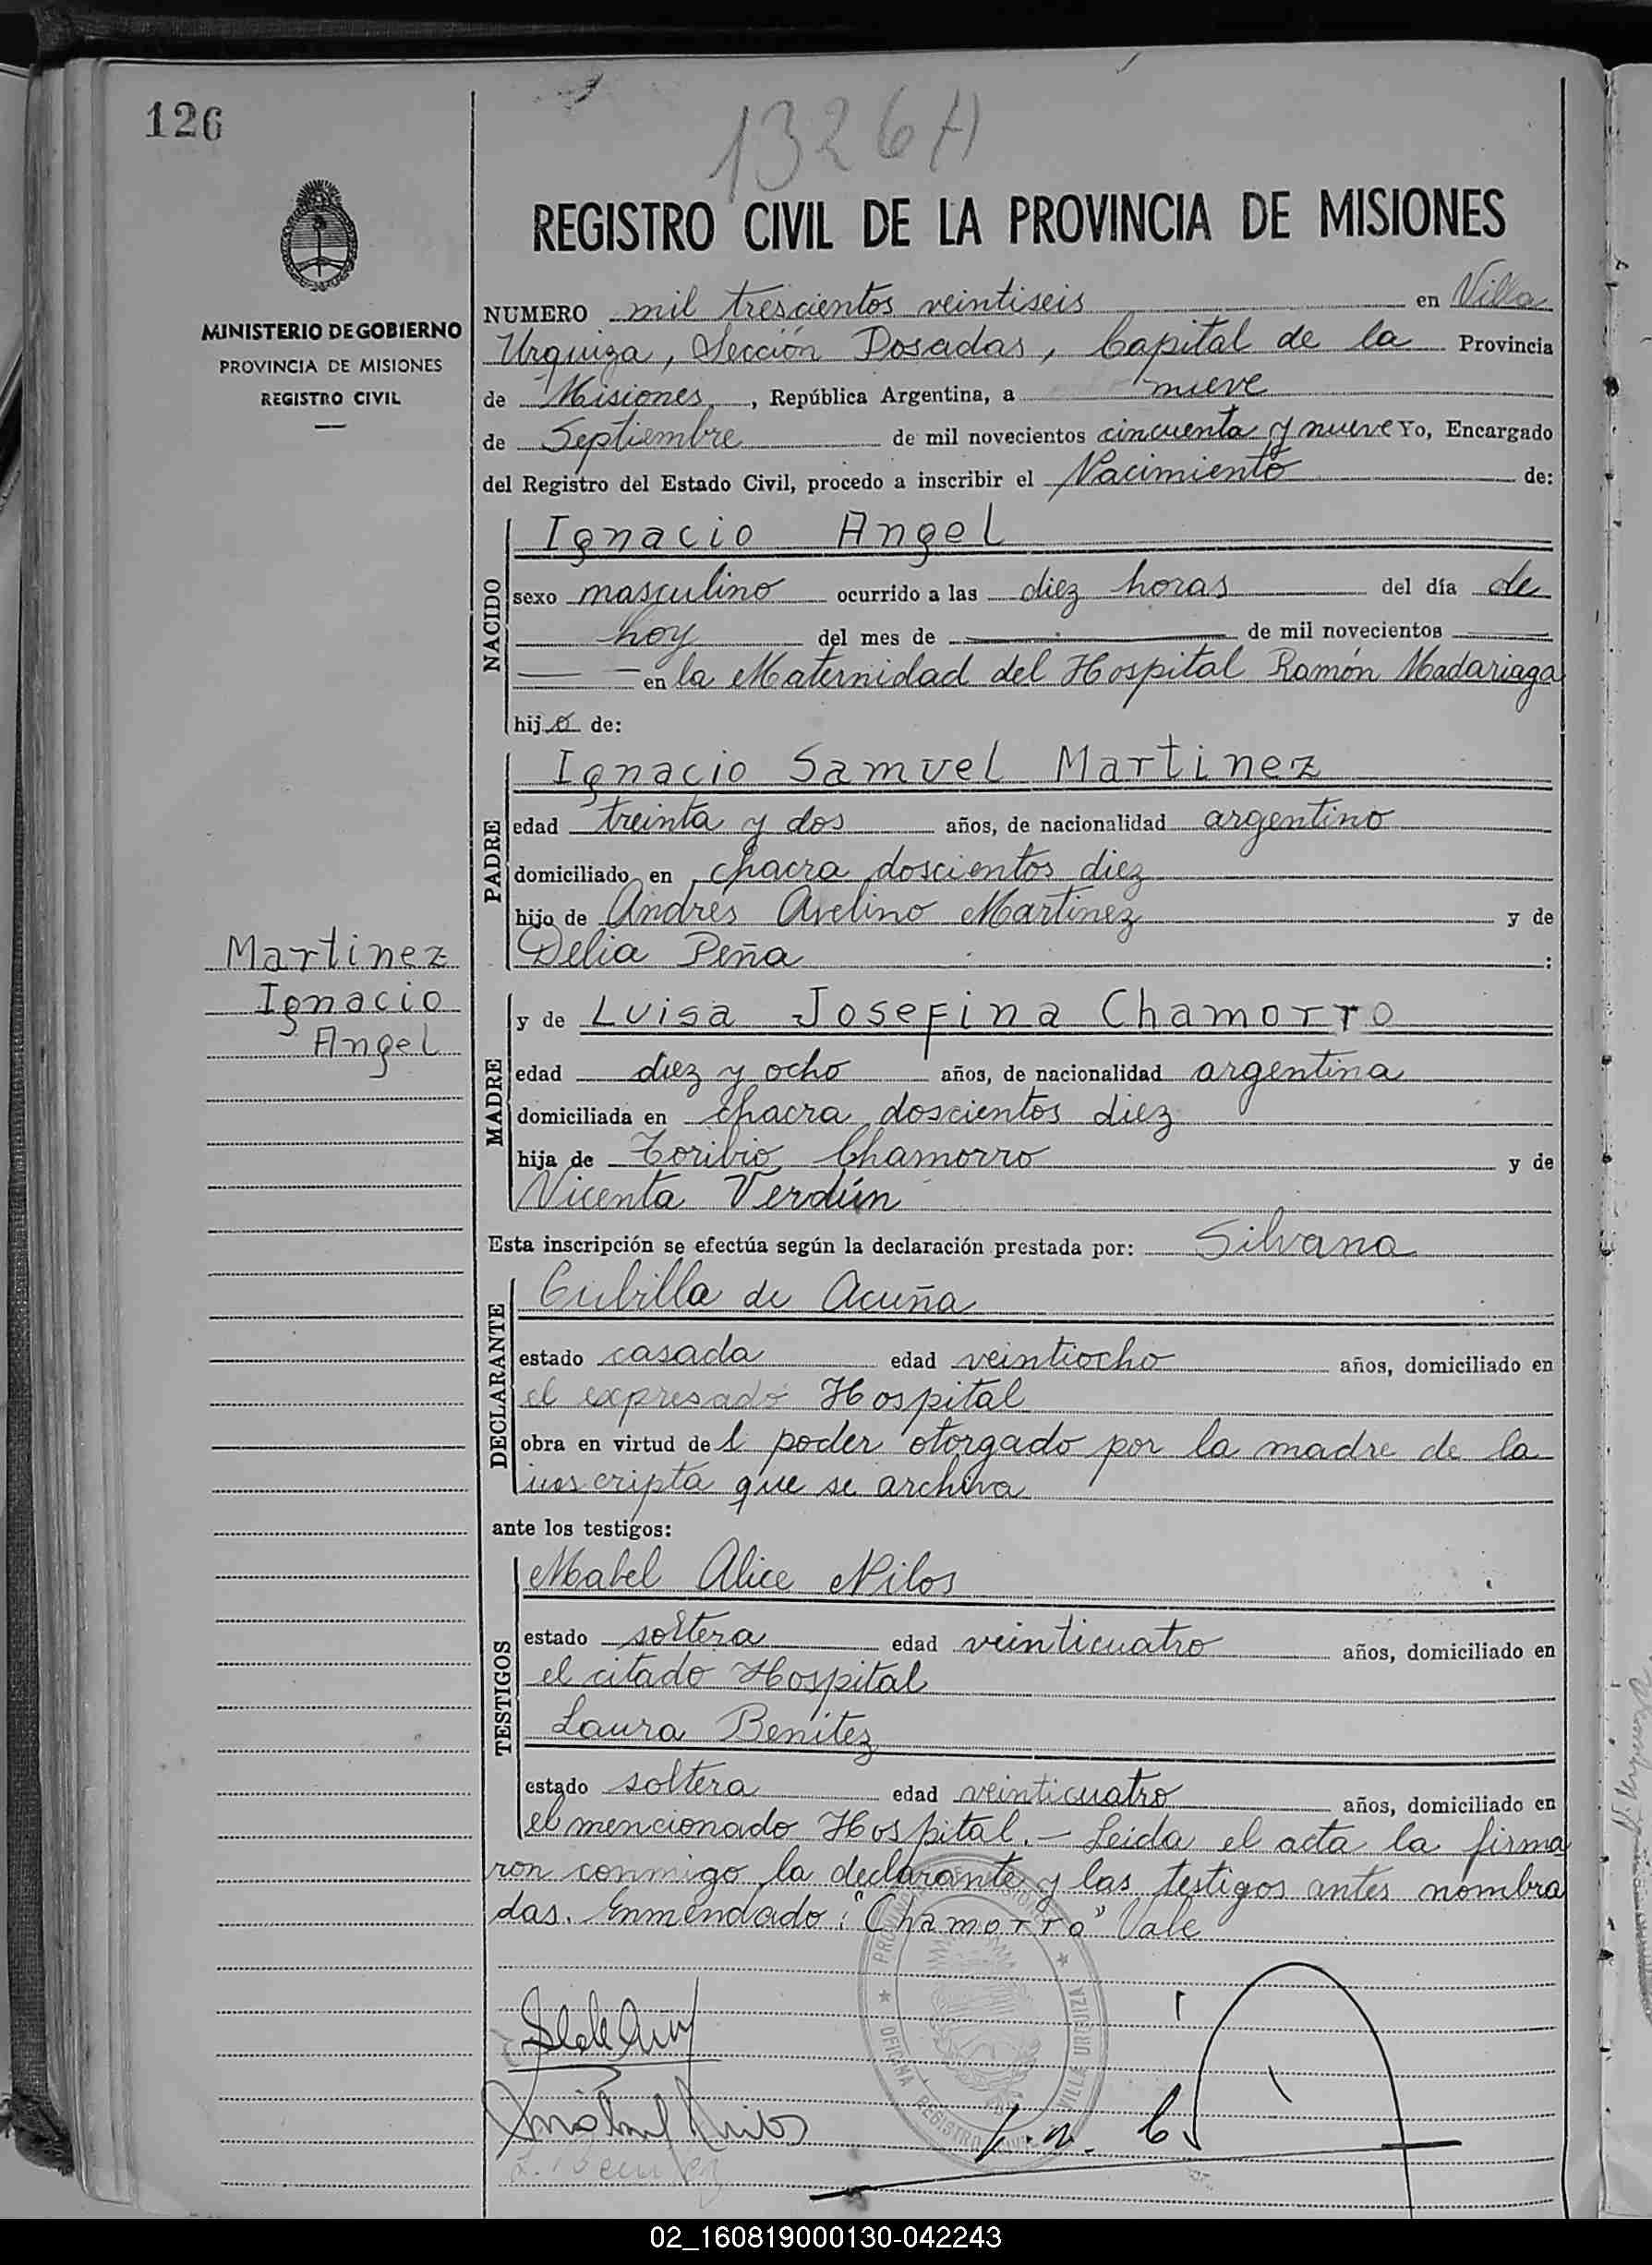 126
1326 A
REGISTRO CIVIL DE LA PROVINCIA DE MISIONES
MINISTERIO DE GOBIERNO
PROVINCIA DE MISIONES
REGISTRO CIVIL
NUMERO mil trescientos veintiseis en Villa
Urquiza, Sección Posadas, Capital de la Provincia
de Misiones, República Argentina, a nueve
de Septiembre de mil novecientos cincuenta y nueve Yo, Encargado
del Registro del Estado Civil, procedo a inscribir el Nacimiento de:
NACIDO
Ignacio Angel
sexo masculino ocurrido a las diez horas del día de
hoy del mes de — de mil novecientos —
— — en la Maternidad del Hospital Ramón Madariaga
hijo de:
PADRE
Ignacio Samuel Martinez
edad treinta y dos años, de nacionalidad argentino
domiciliado en chacra doscientos diez
hijo de Andres Avelino Martinez y de
Delia Peña :
Martinez
Ignacio
Angel
MADRE
y de Luisa Josefina Chamorro
edad diez y ocho años, de nacionalidad argentina
domiciliada en chacra doscientos diez
hija de Toribio Chamorro y de
Vicenta Verdún
Esta inscripción se efectúa según la declaración prestada por: Silvana
DECLARANTE
Cubilla de Acuña
estado casada edad veintiocho años, domiciliado en
el expresado Hospital
obra en virtud del poder otorgado por la madre de la
inscripta que se archiva
ante los testigos:
TESTIGOS
Mabel Alice Nilos
estado soltera edad veinticuatro años, domiciliado en
el citado Hospital
Laura Benitez
estado soltera edad veinticuatro años, domiciliado en
el mencionado Hospital. — Leida el acta la firma
ron conmigo la declarante y las testigos antes nombra
das. Enmendado: "Chamorro" Vale
OFICINA REGISTRO CIVIL VILLA URQUIZA
02_160819000130-042243